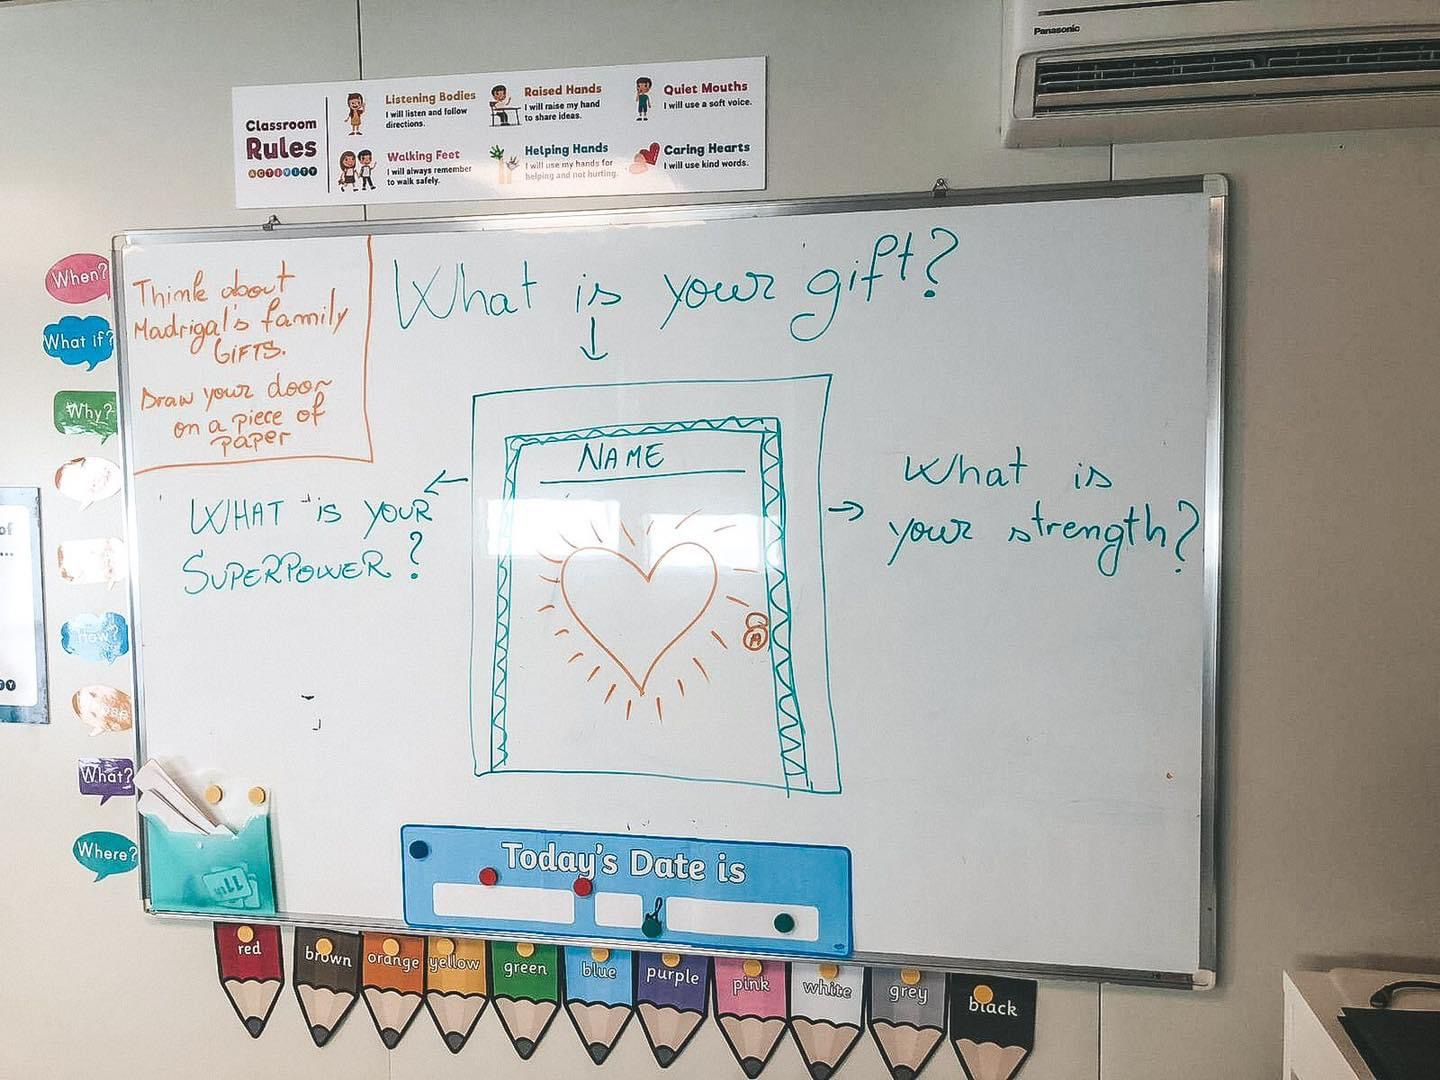 Panasonic
Classroom
Rules
ACTIVITY
Listening Bodies
I will listen and follow
directions.
Raised Hands
I will raise my hand
to share ideas.
Quiet Mouths
I will use a soft voice.
Walking Feet
I will always remember
to walk safely.
Helping Hands
I will use my hands for
helping and not hurting.
Caring Hearts
I will use kind words.
When?
What if?
Why?
How?
What?
Where?
Think about
Madrigal's family
GIFTS.
Draw your door
on a piece of
paper
What is your gift?
NAME
WHAT IS YOUR
SUPERPOWER?
What is
your strength?
of
...
11th
Today's Date is
red
brown
orange
yellow
green
blue
purple
pink
white
grey
black